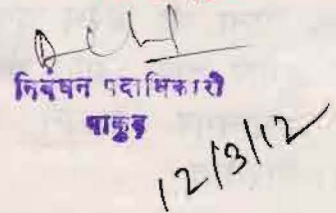 निबंधन पदाधिकारी
पाकुड़
12/3/12